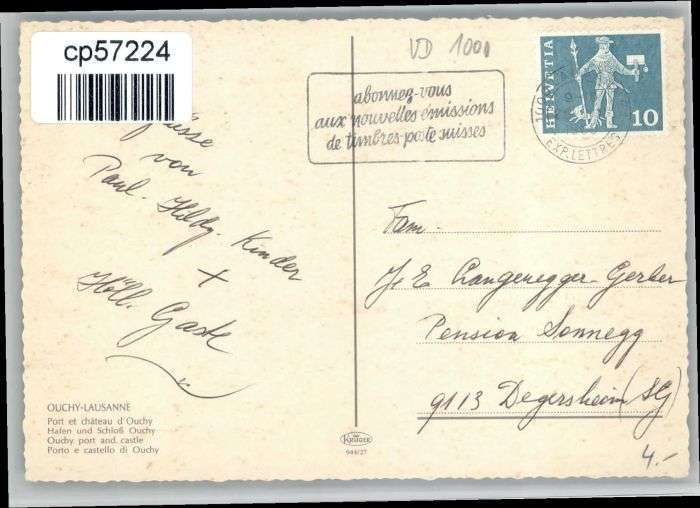 cp57224
VD 1000
abonnez-vous
aux nouvelles émissions
de timbres-poste suisses
HELVETIA
10
EXP. LETTRES
von
Paul. Hildg. Kinder
+
Höll. Gaste
Fam.
J. E. Langenegger-Gerber
Pension Sonnegg
9113 Degersheim (SG)
4.-
OUCHY-LAUSANNE
Port et château d'Ouchy
Hafen und Schloß Ouchy
Ouchy port and castle
Porto e castello di Ouchy
KRÜGER
944/27